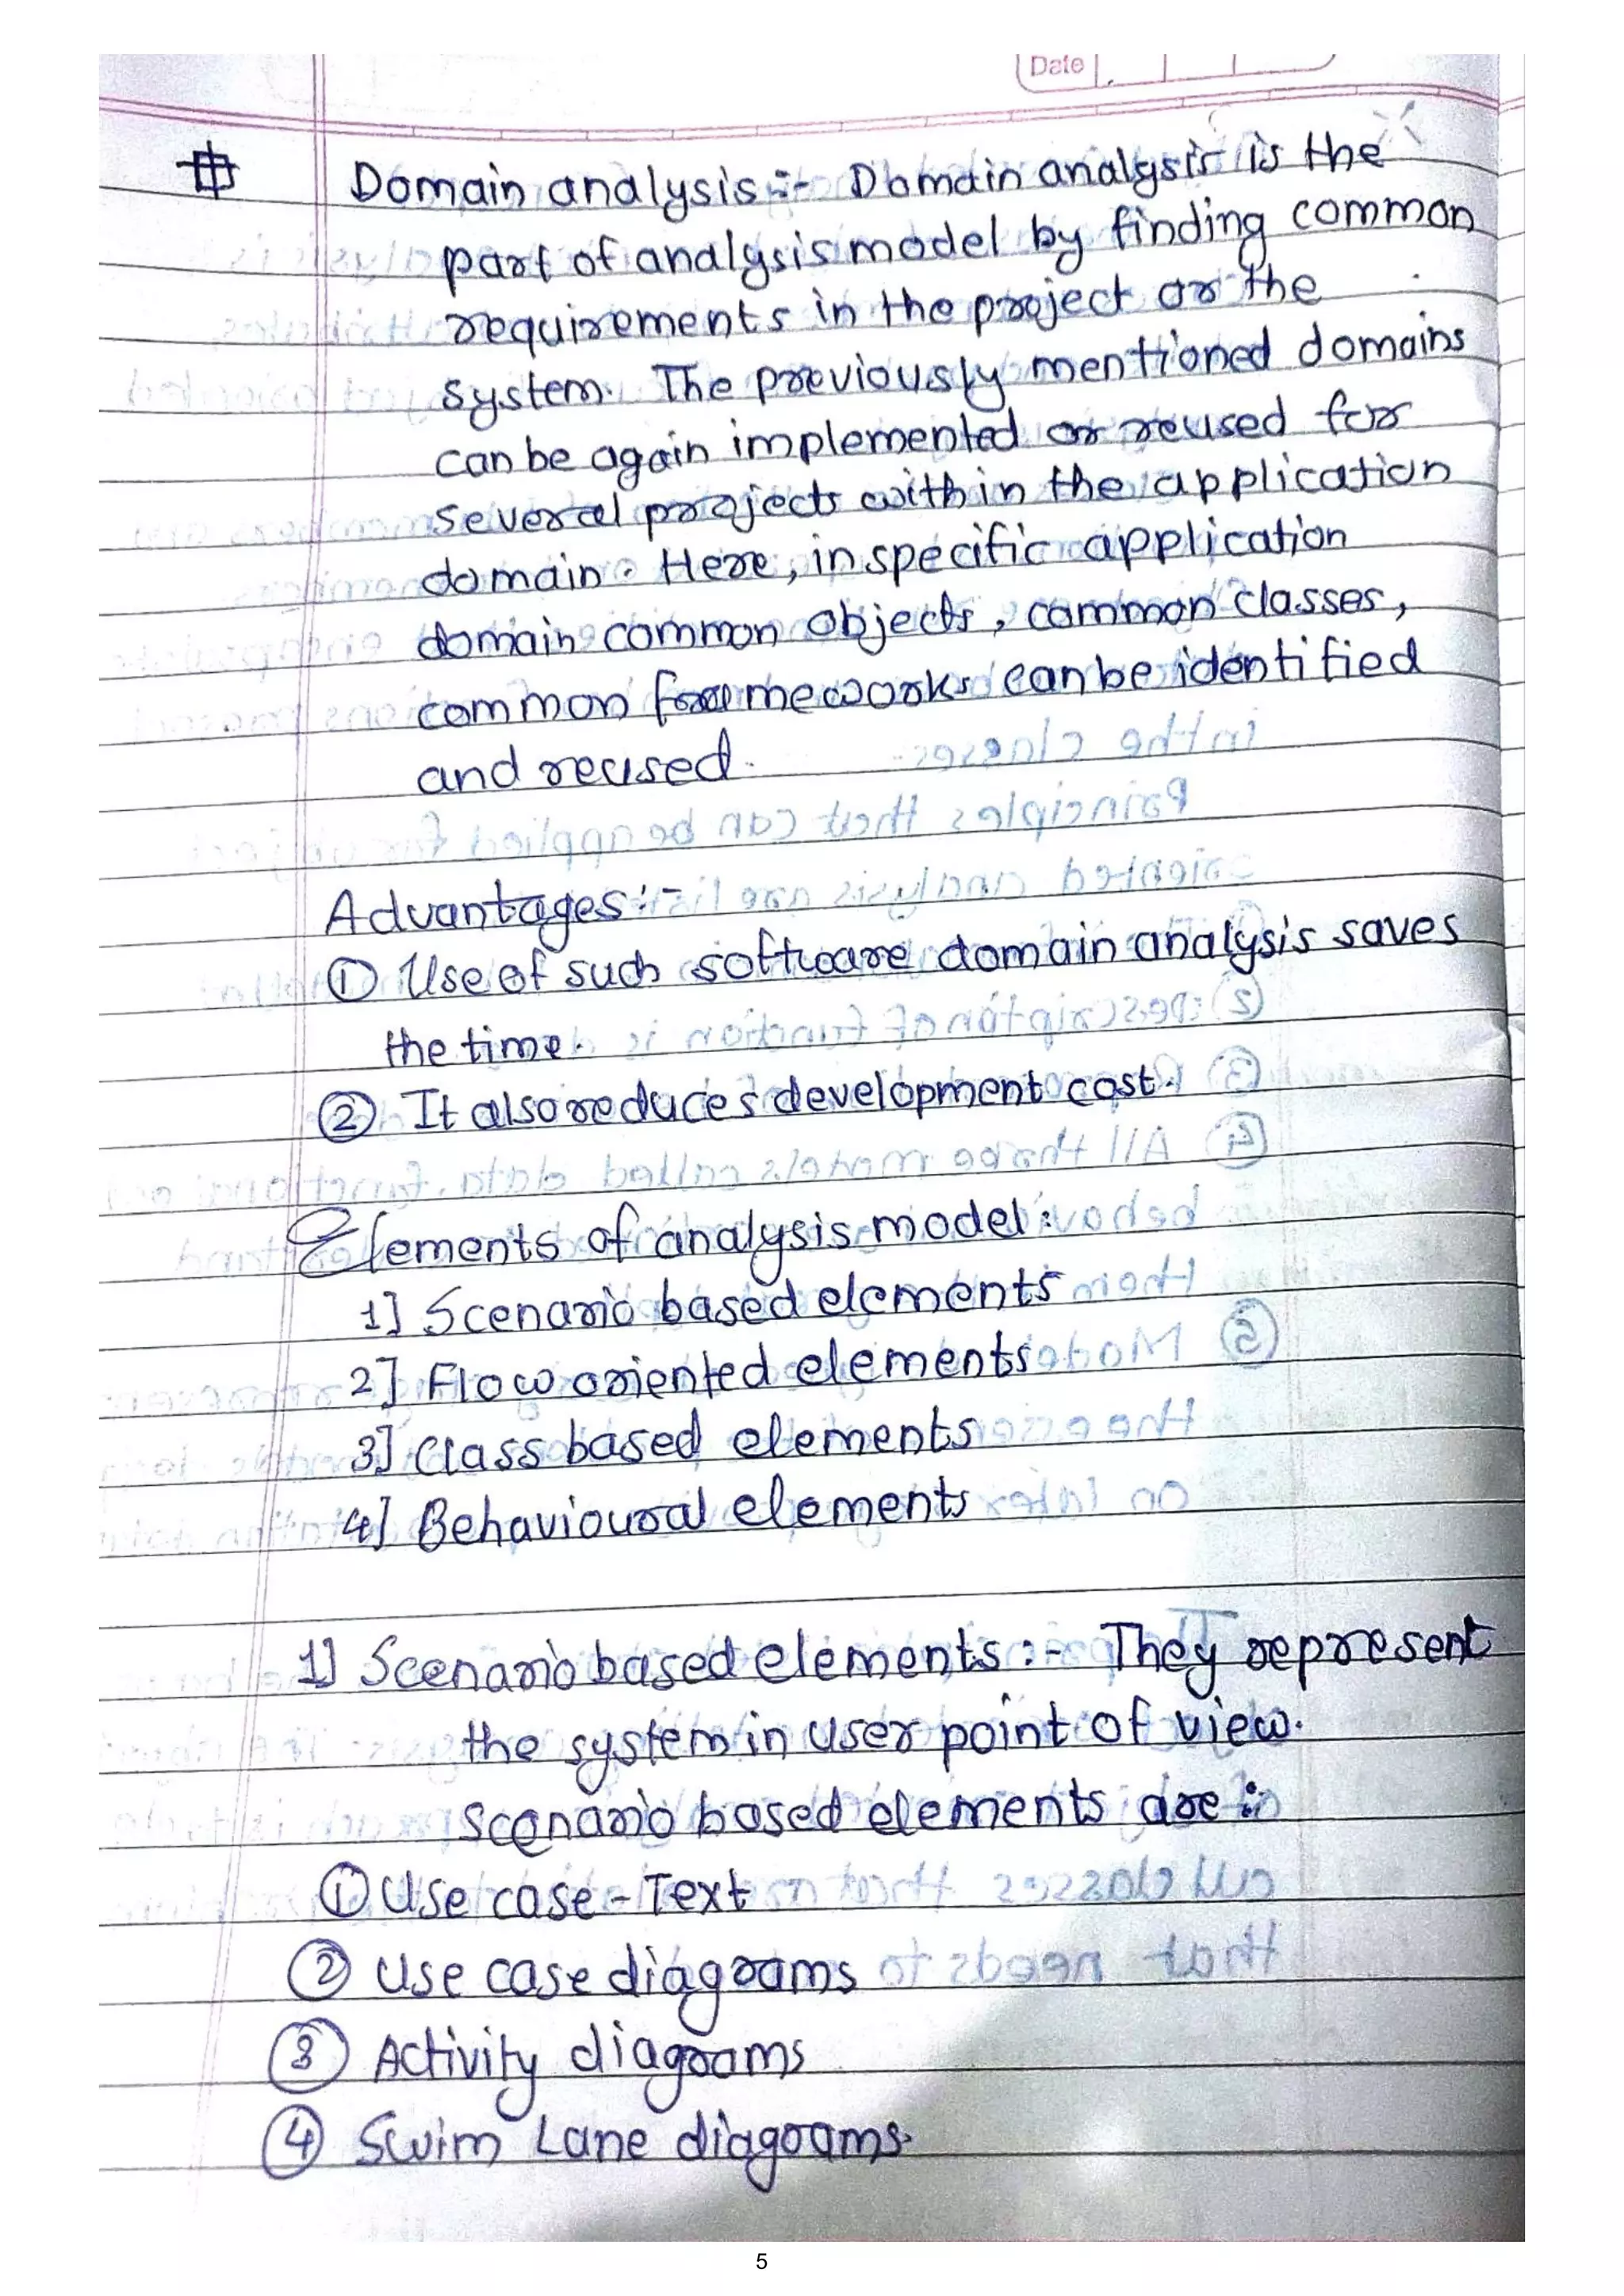 Date
# Domain analysis :- Domain analysis is the
part of analysis model by finding common
requirements in the project or the
system. The previously mentioned domains
can be again implemented or reused for
several projects within the application
domain. Here, in specific application
domain common objects, common classes,
common frameworks can be identified
and reused.
Advantages :-
① Use of such software domain analysis saves
the time.
② It also reduces development cost.
Elements of analysis model :
1] Scenario based elements
2] Flow oriented elements
3] Class based elements
4] Behavioural elements
1] Scenario based elements :- They represent
the system in user point of view.
Scenario based elements are :
① Use case - Text
② Use case diagrams
③ Activity diagrams
④ Swim Lane diagrams.
5